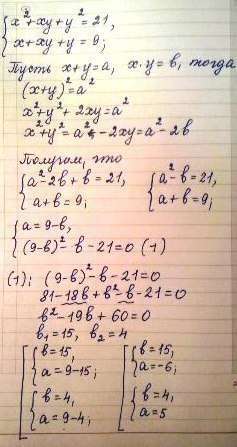 x²+xy+y²=21,
x+xy+y=9;
Пусть x+y=a, x·y=в, тогда
(x+y)²=a²
x²+y²+2xy=a²
x²+y²=a²-2xy=a²-2в
Получим, что
a²-2в+в=21, a²-в=21,
a+в=9; a+в=9;
a=9-в,
(9-в)²-в-21=0 (1)
(1): (9-в)²-в-21=0
81-18в+в²-в-21=0
в²-19в+60=0
в₁=15, в₂=4
в=15, в=15,
a=9-15; a=-6;
в=4, в=4,
a=9-4; a=5